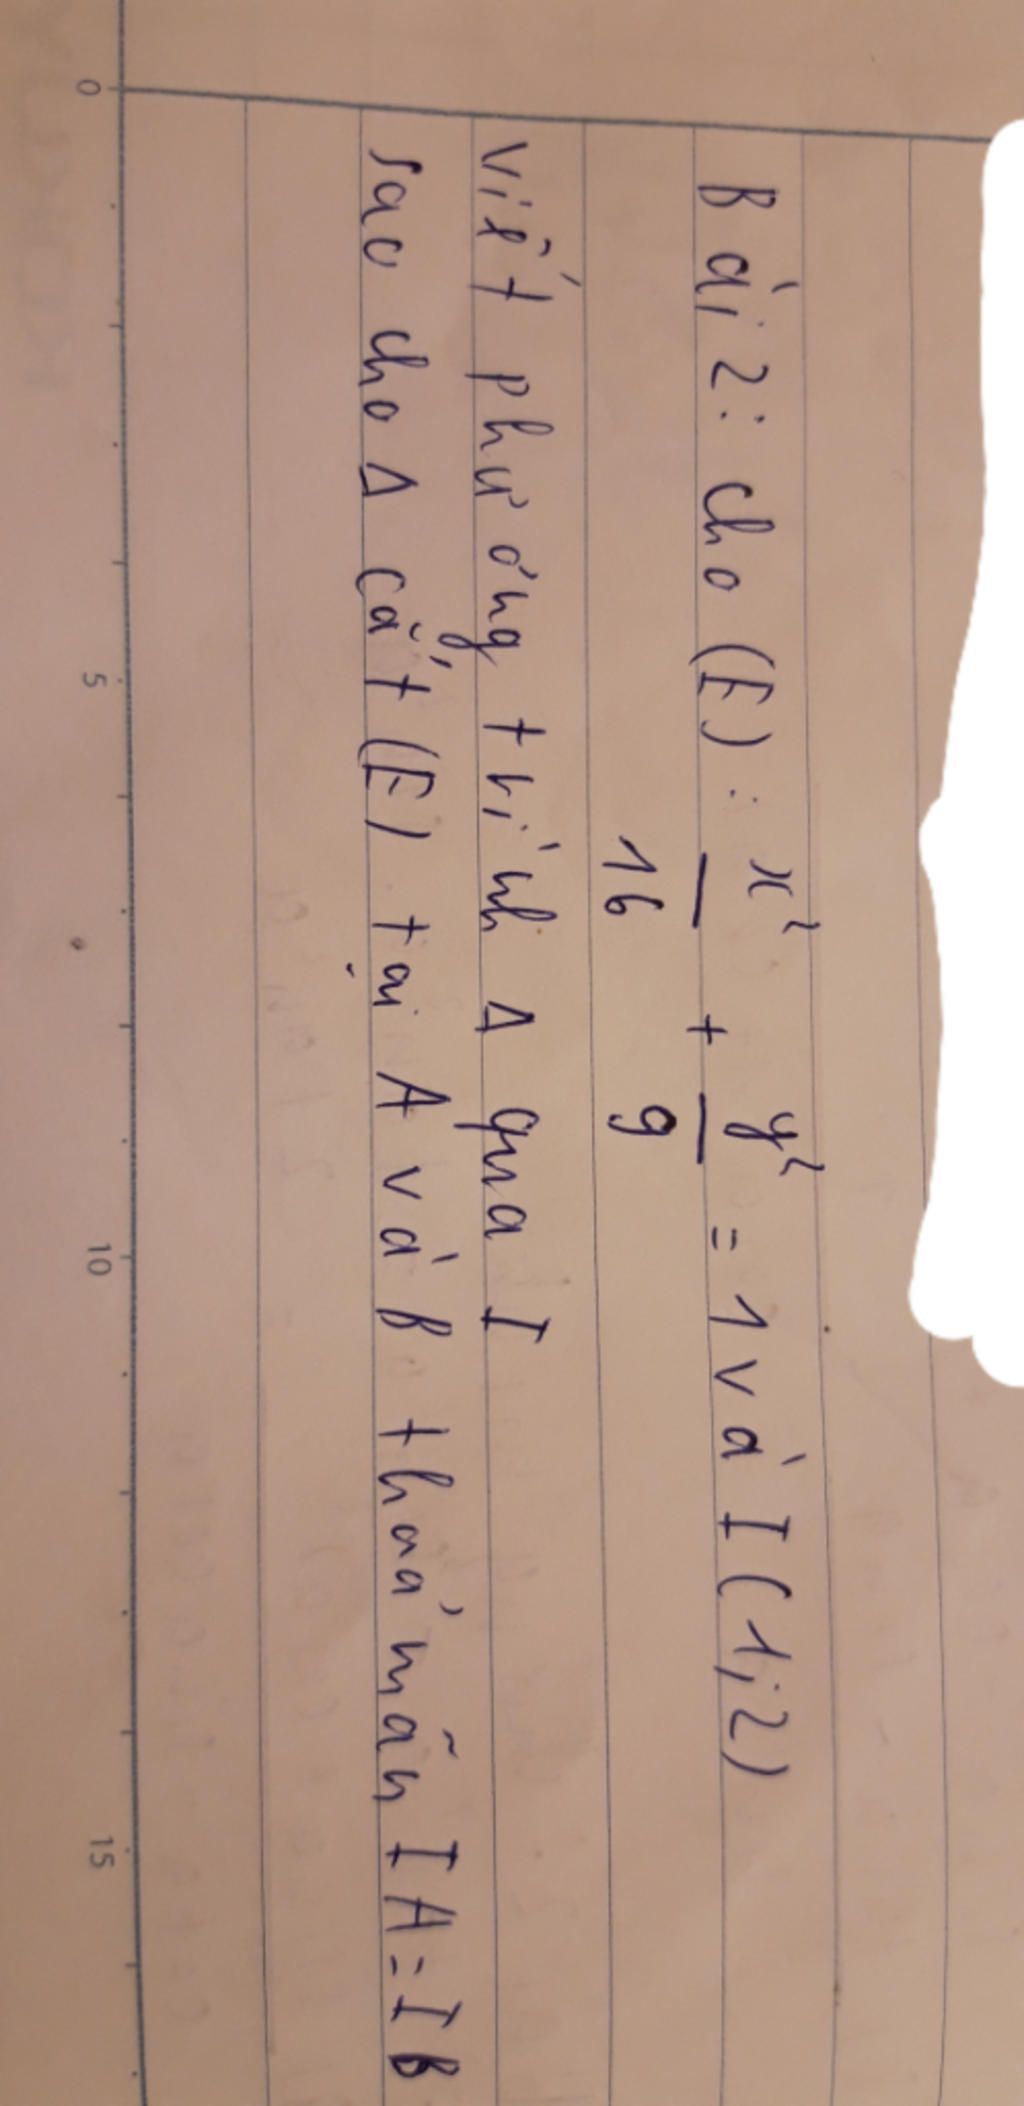 Bài 2: cho (E): x²/16 + y²/9 = 1 và I(1;2)
Viết phương trình Δ qua I
sao cho Δ cắt (E) tại A và B thoả mãn IA=IB
0 5 10 15